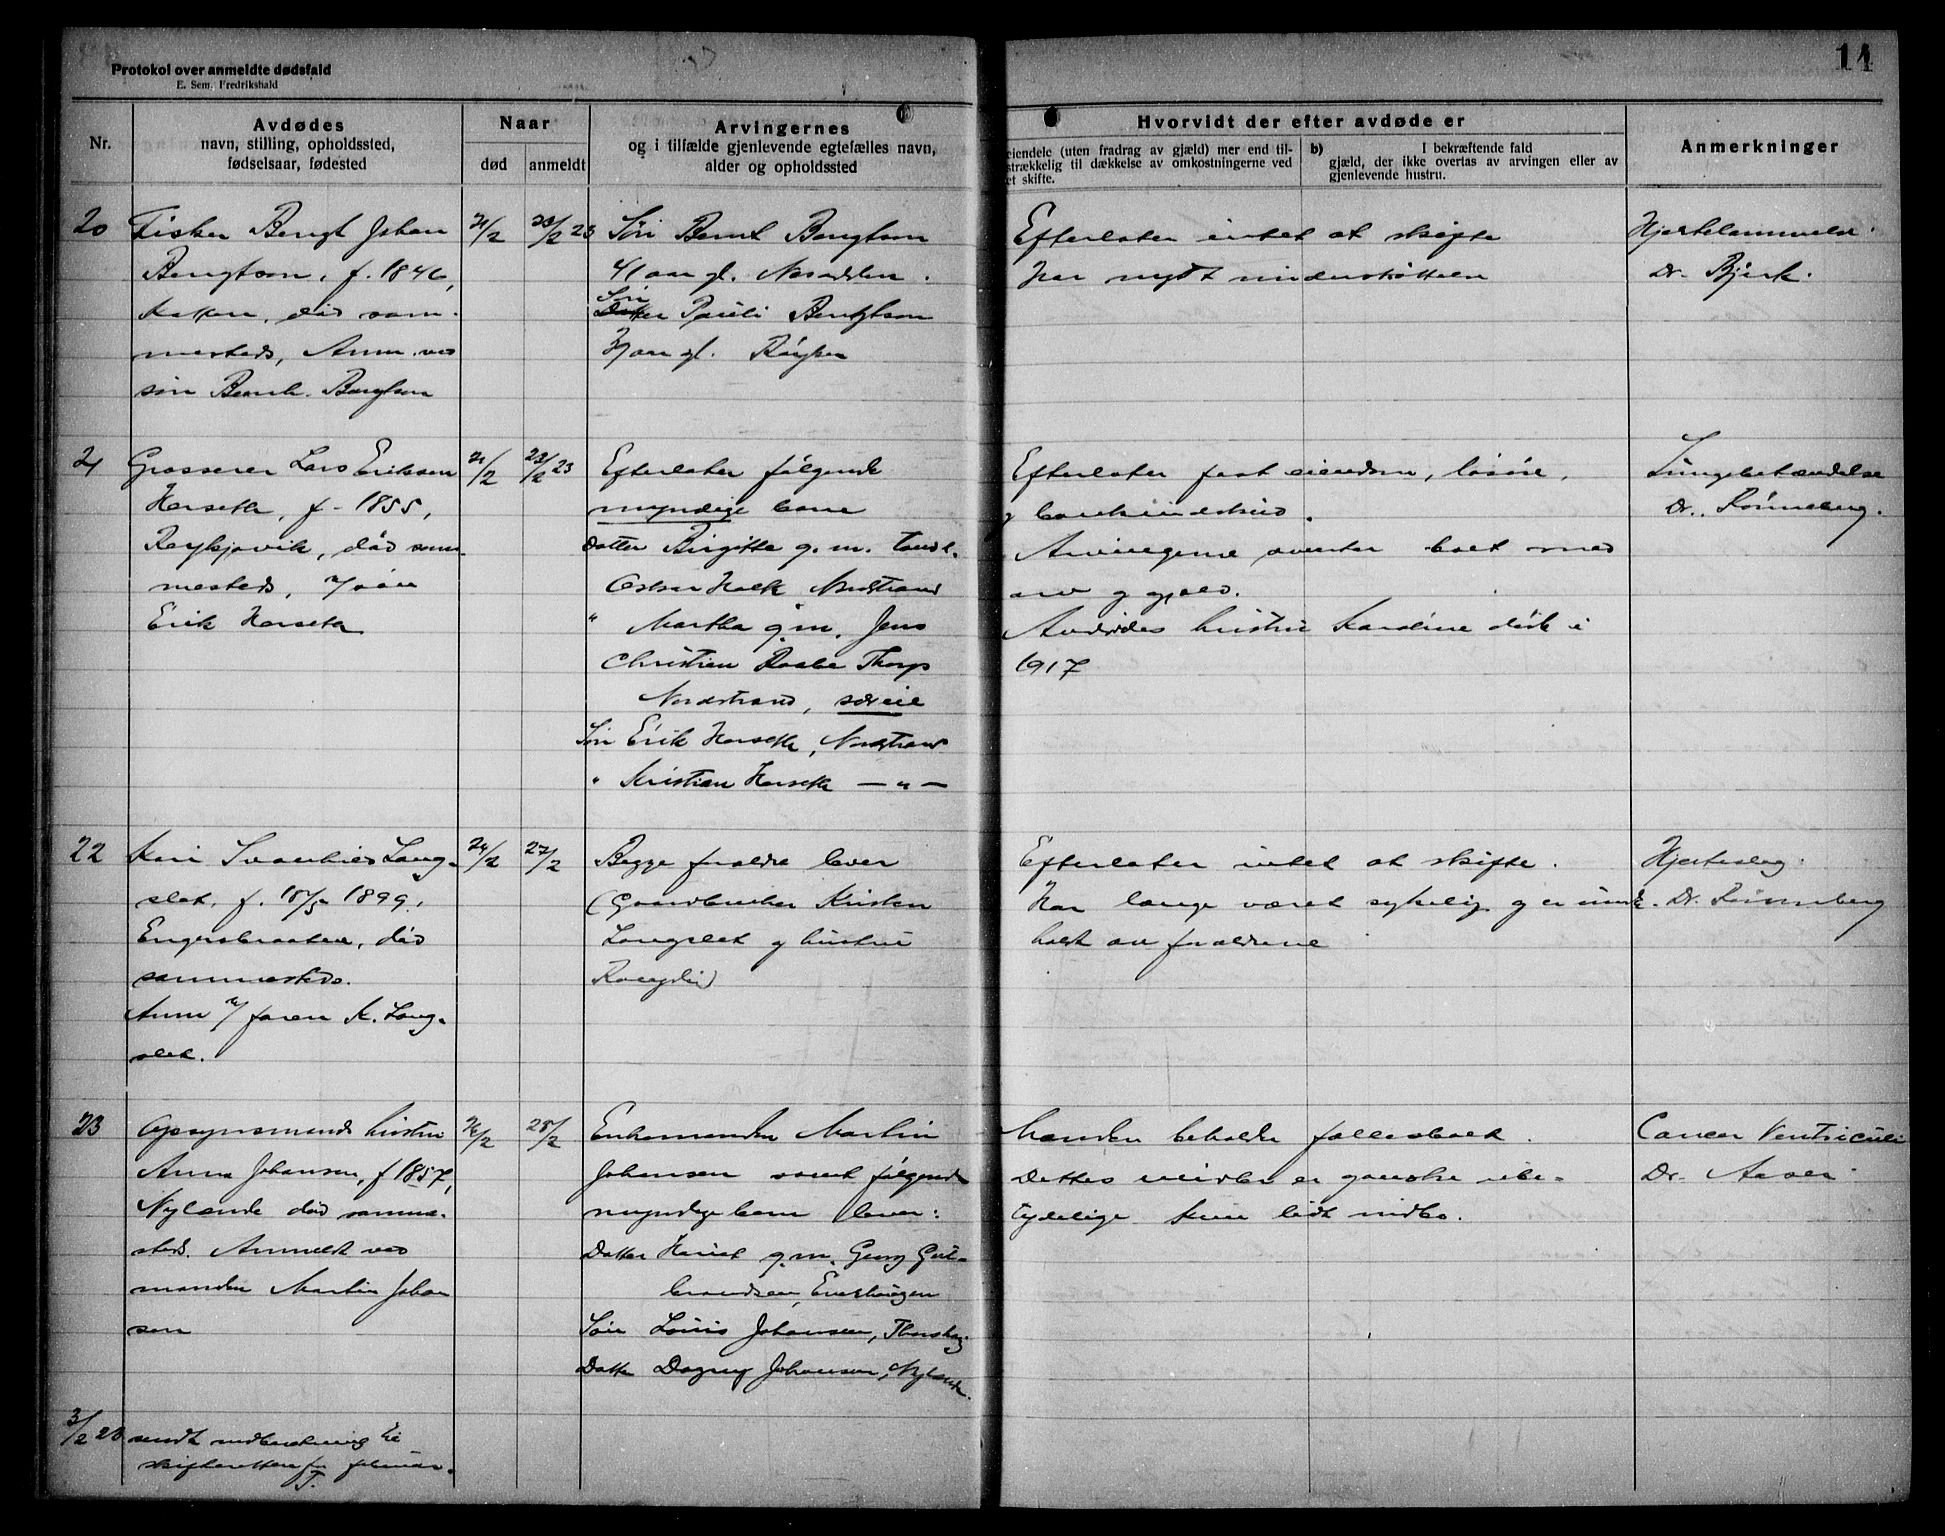 14
Protokol over anmeldte dødsfald
E. Sem. Fredrikshald
Nr.
Avdødes
navn, stilling, opholdssted,
fødselsaar, fødested
Naar
død
anmeldt
Arvingernes
og i tilfælde gjenlevende egtefælles navn,
alder og opholdssted
Hvorvidt der efter avdøde er
eiendele (uten fradrag av gjæld) mer end til-
strækkelig til dækkelse av omkostningerne ved
et skifte.
b) I bekræftende fald
gjæld, der ikke overtas av arvingen eller av
gjenlevende hustru.
Anmerkninger
20
Fisker Bengt Johan
Bengtson, f. 1846,
død sam-
mesteds, Anm. ved
søn Bernh. Bengtson
21/2
23/2 23
Søn Bernt Bengtson
41 aar gl. Nesodden.
Søn
Datter Pauli Bengtson
37 aar gl. Røyken
Efterlater intet at skifte
Har nydt understøttelse
Hjertelammelse.
Dr. Bjerk.
21
Grosserer Lars Eriksen
Horseth, f. 1855,
Reykjavik, død sam-
mesteds, v/ søn
Erik Horseth
21/2
23/2 23
Efterlater følgende
myndige barn
Datter Birgitte g. m. Tandl.
Oskar Holk Nordstrand
" Martha g. m. Jens
Christian Raabe Thorp
Nordstrand, særeie
Søn Erik Horseth, Nordstrand
" Kristian Horseth — " —
Efterlater fast eiendom, løsøre,
g bankindskud.
Arvingerne overtar boet med
arv g gjæld.
Avdødes hustru Karoline døde i
1917
Lungebetændelse
Dr. Rønneberg.
22
Kari Svanhild Lang-
slet, f. 18/5 1899,
Engersbraaten, død
sammesteds.
Anm v/ faren K. Lang-
slet.
24/2
27/2
Begge foreldre lever
(Gaardbruker Kristen
Langslet g hustru
Efterlater intet at skifte.
Har længe været sykelig g er under-
holdt av foreldrene
Hjerteslag.
Dr. Rønneberg
23
Opsynsmands hustru
Anna Johansen, f 1857,
Nylænde død samme-
steds. Anmeldt ved
manden Martin Johan
sen
26/2
28/2
Enkemanden Martin
Johansen samt følgende
myndige barn lever:
Datter Harriet g. m. Georg Gul-
brandsen, Enerhaugen
Søn Louis Johansen, Thorshaug
Datter Dagny Johansen, Nylænde.
Manden beholder fællesboet.
Dettes midler er ganske ube-
tydelige kun lidt indbo.
Cancer Ventriculi
Dr. Aaser.
3/2 23 sendt indberetning til
skifteretten for februar.
T.